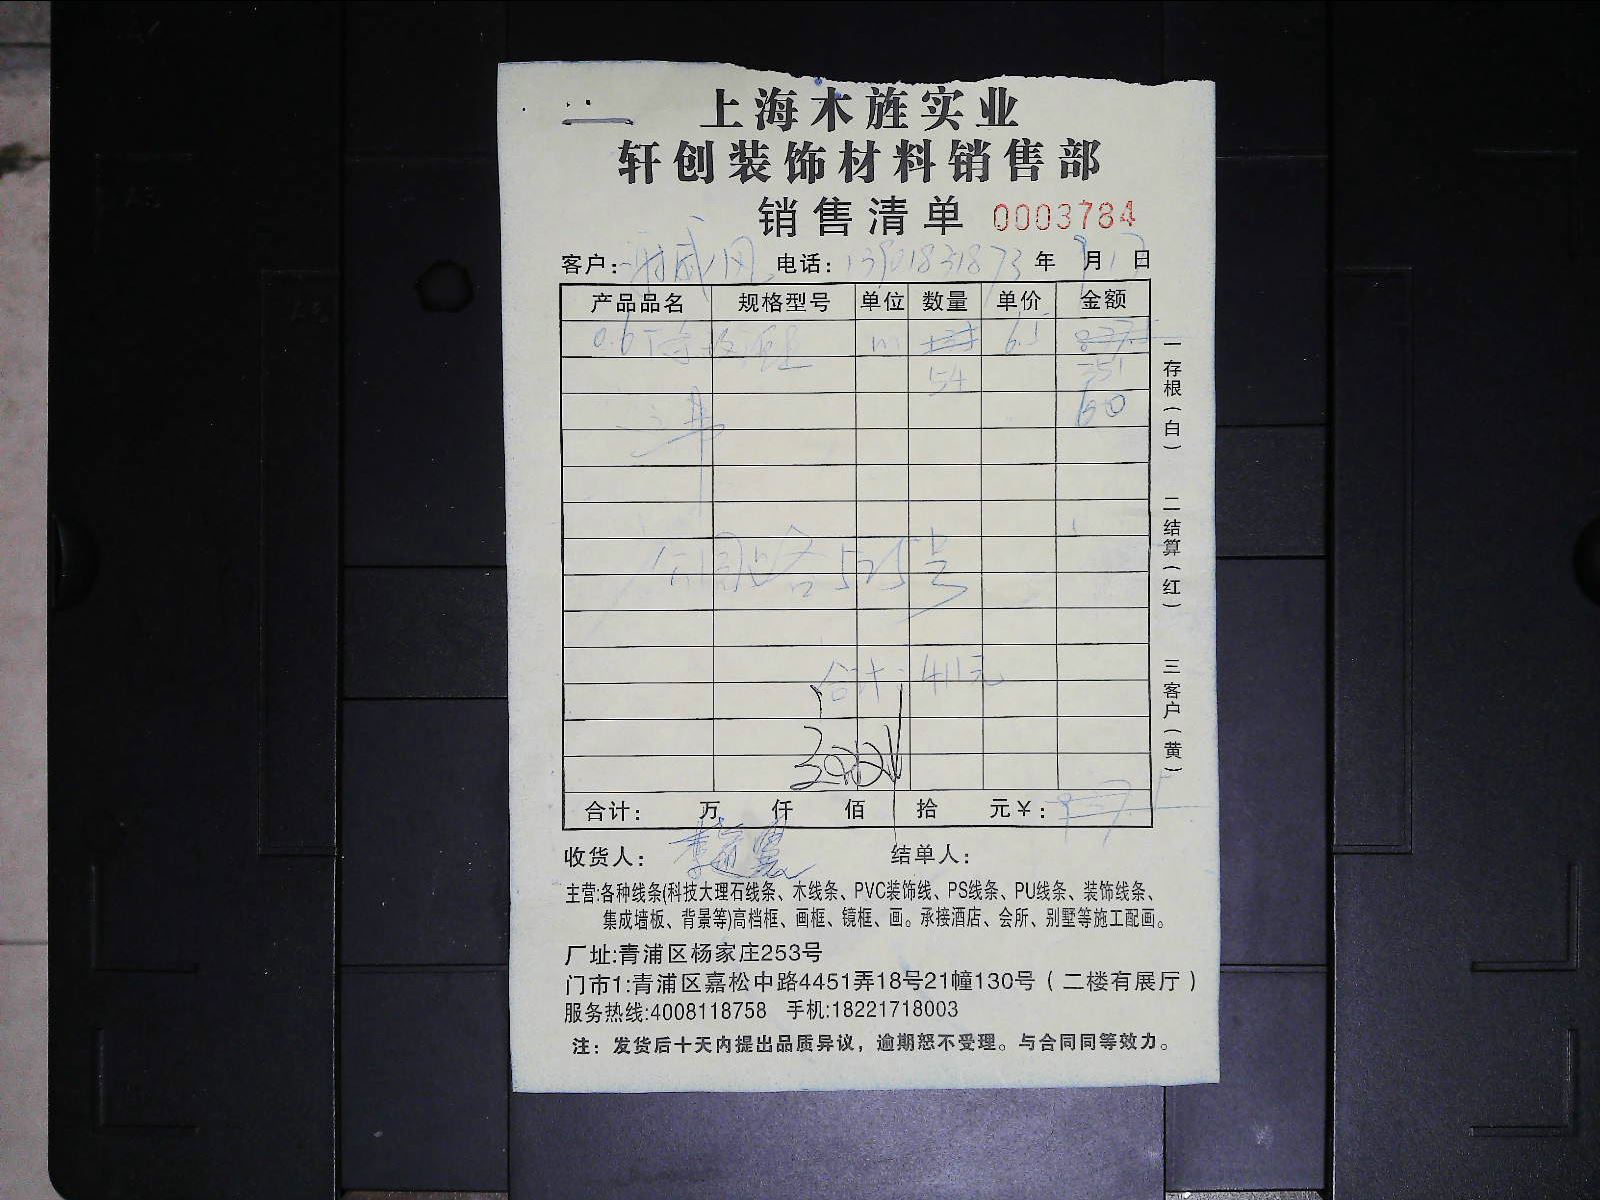 上海木旌实业
轩创装饰材料销售部
销售清单 0003784
客户: 电话:13901831873 年 9月17日
产品品名 规格型号 单位 数量 单价 金额
0.6 m 6.5
54 351
60
同路 525号
合计 411元
合计: 万 仟 佰 拾 元¥:
收货人: 结单人:
主营:各种线条(科技大理石线条、木线条、PVC装饰线、PS线条、PU线条、装饰线条、
集成墙板、背景等)高档框、画框、镜框、画。承接酒店、会所、别墅等施工配画。
厂址:青浦区杨家庄253号
门市1:青浦区嘉松中路4451弄18号21幢130号(二楼有展厅)
服务热线:4008118758 手机:18221718003
注:发货后十天内提出品质异议,逾期怒不受理。与合同同等效力。
一存根(白) 二结算(红) 三客户(黄)